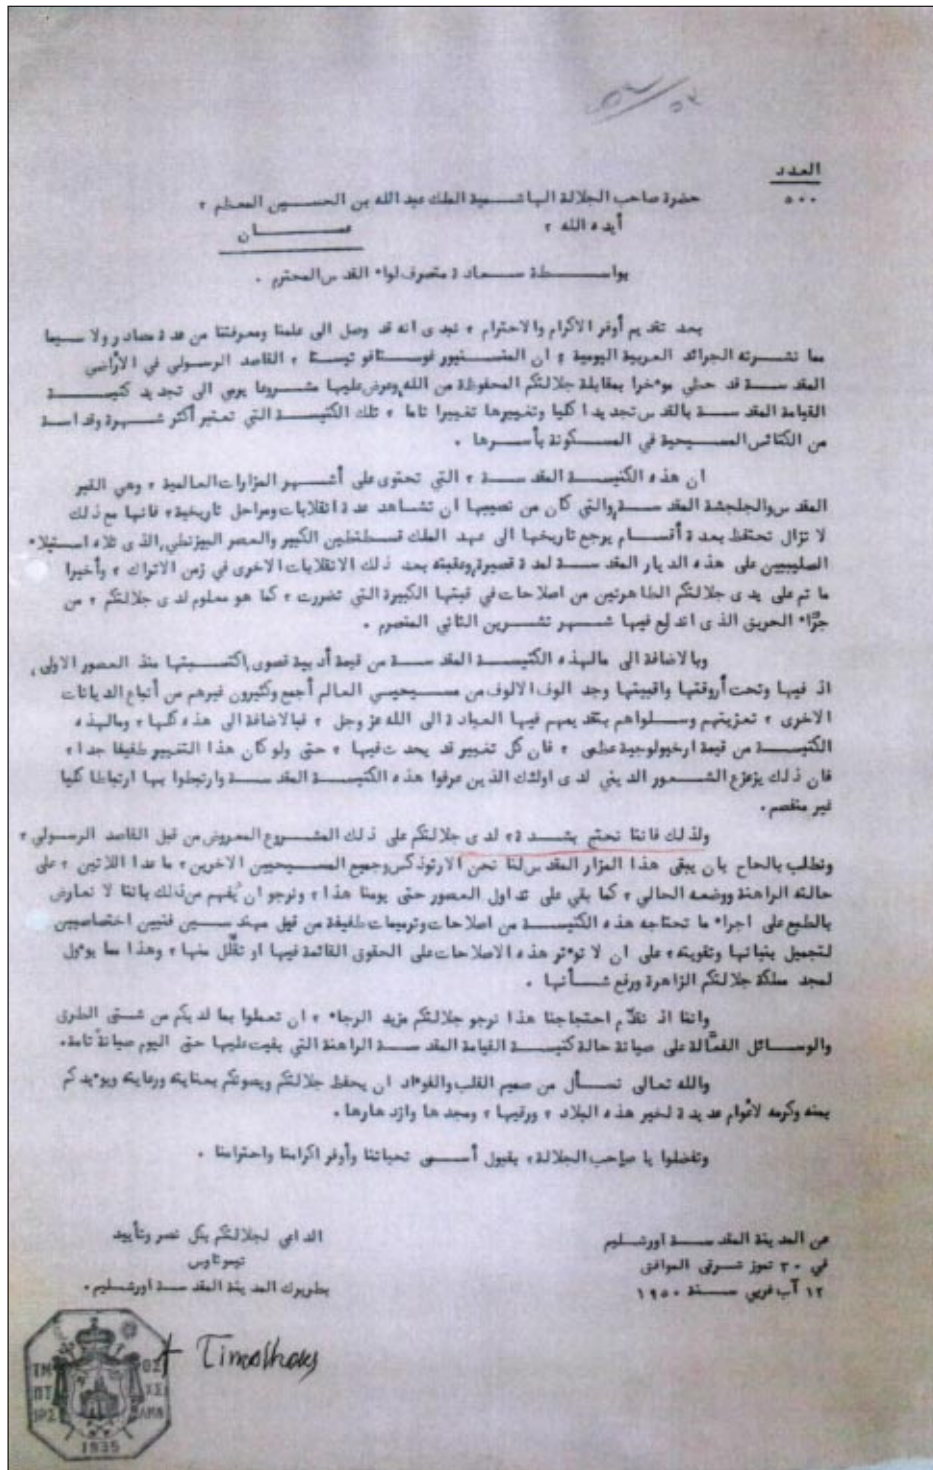 ٥٢/٥٢
العدد
٥٠٠
حضرة صاحب الجلالة الهاشمية الملك عبد الله بن الحسين المعظم ،
أيده الله ، عمان
بواسطة سعادة متصرف لواء القدس المحترم .
بعد تقديم أوفر الاكرام والاحترام ، نبدى انه قد وصل الى علمنا ومعرفتنا من عدة مصادر ولا سيما
مما نشرته الجرائد العربية اليومية ، ان المنسنيور غوستافو تيستا ، القاصد الرسولي في الأراضي
المقدسة قد حظى موءخرا بمقابلة جلالتكم المحفوظة من الله، وعرض عليها مشروعا يرمى الى تجديد كنيسة
القيامة المقدسة بالقدس تجديدا كليا وتغييرها تغييرا تاما ، تلك الكنيسة التي تعتبر أكثر شهرة وقداسة
من الكنائس المسيحية في المسكونة بأسرها .
ان هذه الكنيسة المقدسة ، التي تحتوى على أشهر المزارات العالمية ، وهي القبر
المقدس والجلجثة المقدسة، والتي كان من نصيبها ان تشاهد عدة انقلابات ومراحل تاريخية، فانها مع ذلك
لا تزال تحتفظ بعدة أقسام يرجع تاريخها الى عهد الملك قسطنطين الكبير والعصر البيزنطي، الذى تلاه استيلاء
الصليبيين على هذه الديار المقدسة لمدة قصيرة، وعقبته بعد ذلك الانقلابات الاخرى في زمن الاتراك ، وأخيرا
ما تم على يدى جلالتكم الطاهرتين من اصلاحات في قبتها الكبيرة التي تضررت ، كما هو معلوم لدى جلالتكم ، من
جرّاء الحريق الذى اندلع فيها شهر تشرين الثاني المنصرم .
وبالاضافة الى مالهذه الكنيسة المقدسة من قيمة أدبية قصوى، اكتسبتها منذ العصور الاولى،
اذ فيها وتحت أروقتها واقبيتها وجد الوف الالوف من مسيحيي العالم أجمع وكثيرون غيرهم من أتباع الديانات
الاخرى ، تعزيتهم وسلواهم بتقديمهم فيها العبادة الى الله عز وجل ، فبالاضافة الى هذه كلها ، ومالهذه
الكنيسة من قيمة ارخيولوجية عظمى ، فان كل تغيير قد يحدث فيها ، حتى ولو كان هذا التغيير طفيفا جدا ،
فان ذلك يزعزع الشعور الديني لدى اولئك الذين عرفوا هذه الكنيسة المقدسة وارتبطوا بها ارتباطا كليا
غير منفصم .
ولذلك فاننا نحتج بشدة ، لدى جلالتكم على ذلك المشروع المعروض من قبل القاصد الرسولي ،
ونطلب بالحاح بان يبقى هذا المزار المقدس لنا نحن الارثوذكس وجميع المسيحيين الاخرين ، ما عدا اللاتين ، على
حالته الراهنة ووضعه الحالي ، كما بقي على تداول العصور حتى يومنا هذا ، ونرجو ان يُفهم من ذلك باننا لا نعارض
بالطبع على اجراء ما تحتاجه هذه الكنيسة من اصلاحات وترميمات طفيفة من قبل مهندسين فنيين اختصاصيين
لتجميل بنيانها وتقويته ، على ان لا توءثر هذه الاصلاحات على الحقوق القائمة فيها او تقلّل منها ، وهذا مما يوءول
لمجد مملكة جلالتكم الزاهرة ورفع شأنها .
واننا اذ نقدّم احتجاجنا هذا نرجو جلالتكم مزيد الرجاء ، ان تعملوا بما لديكم من شتى الطرق
والوسائل الفعّالة على صيانة حالة كنيسة القيامة المقدسة الراهنة التي بقيت عليها حتى اليوم صيانة تامة .
والله تعالى نسأل من صميم القلب والفوءاد ان يحفظ جلالتكم ويصونكم بعنايته ورعايته ويوءيدكم
بمنه وكرمه لأعوام عديدة لخير هذه البلاد ، ورقيها ، ومجدها وازدهارها .
وتفضلوا يا صاحب الجلالة ، بقبول أسمى تحياتنا وأوفر اكرامنا واحترامنا .
عن المدينة المقدسة اورشليم
في ٣٠ تموز شرقي الموافق
١٢ آب غربي سنة ١٩٥٠
الداعي لجلالتكم بكل نصر وتأييد
تيموثاوس
بطريرك المدينة المقدسة اورشليم .
+ Timotheos
1935